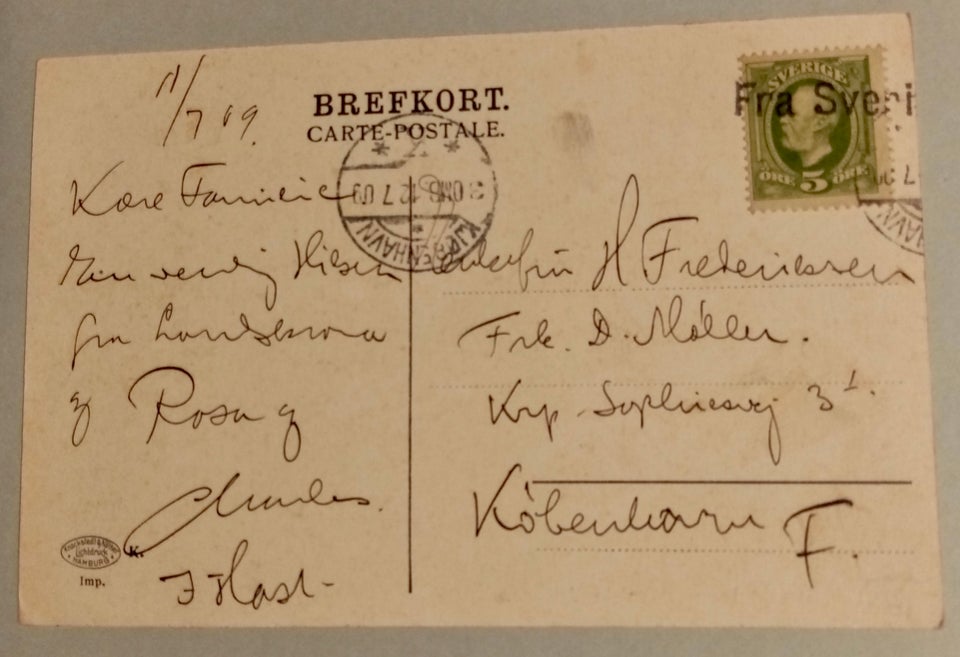 11/7 09.
BREFKORT.
CARTE-POSTALE.
SVERIGE
ÖRE 5 ÖRE
Fra Sveri
3 OMB 12 7 09
KJØBENHAVN
Kære Familie
En venlig Hilsen
fra Landskrona
og Rosa og
Charles.
I Hast-
H Frederiksen
Frk. D. Møller.
Kr p. Sophiesvej 3 1.
København F.
Knackstedt & Näther
Lichtdruck
HAMBURG
K.
Imp.